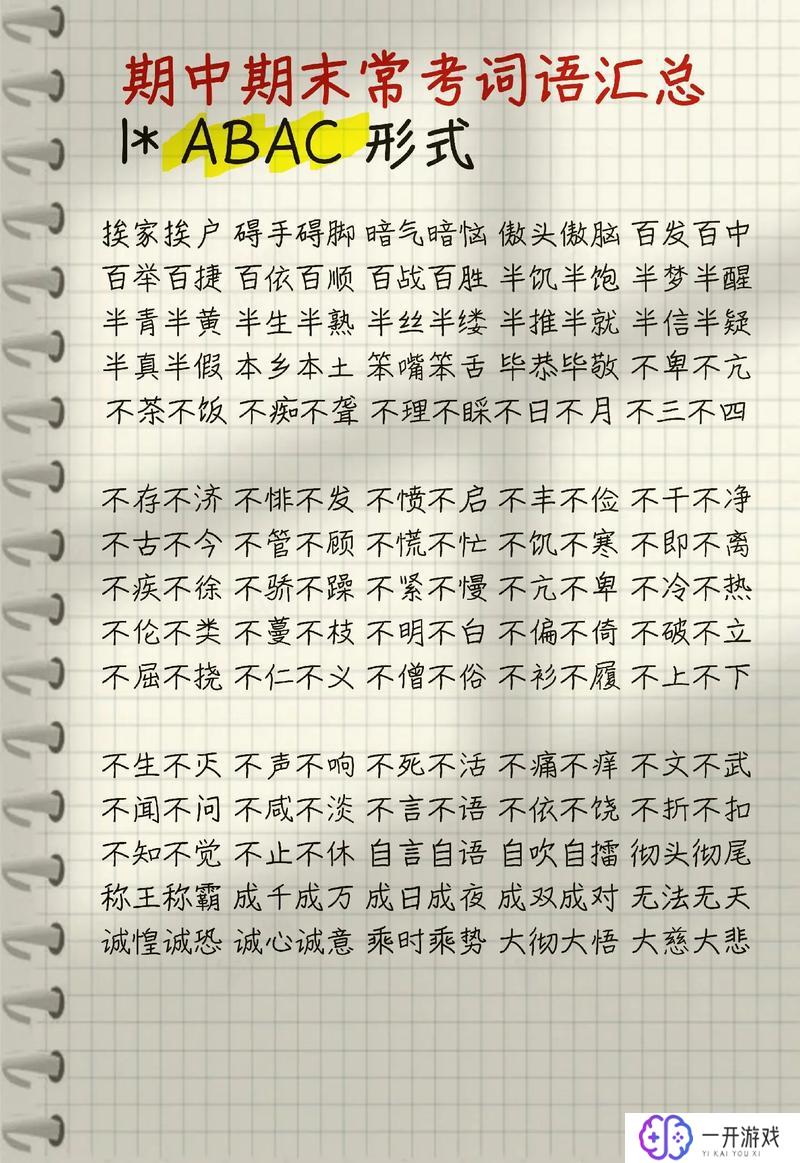 期中期末常考词语汇总
1* ABAC 形式
挨家挨户 碍手碍脚 暗气暗恼 傲头傲脑 百发百中
百举百捷 百依百顺 百战百胜 半饥半饱 半梦半醒
半青半黄 半生半熟 半丝半缕 半推半就 半信半疑
半真半假 本乡本土 笨嘴笨舌 毕恭毕敬 不卑不亢
不茶不饭 不痴不聋 不理不睬 不日不月 不三不四
不存不济 不悱不发 不愤不启 不丰不俭 不干不净
不古不今 不管不顾 不慌不忙 不饥不寒 不即不离
不疾不徐 不骄不躁 不紧不慢 不亢不卑 不冷不热
不伦不类 不蔓不枝 不明不白 不偏不倚 不破不立
不屈不挠 不仁不义 不僧不俗 不衫不履 不上不下
不生不灭 不声不响 不死不活 不痛不痒 不文不武
不闻不问 不咸不淡 不言不语 不依不饶 不折不扣
不知不觉 不止不休 自言自语 自吹自擂 彻头彻尾
称王称霸 成千成万 成日成夜 成双成对 无法无天
诚惶诚恐 诚心诚意 乘时乘势 大彻大悟 大慈大悲
一开游戏
YI KAI YOU XI